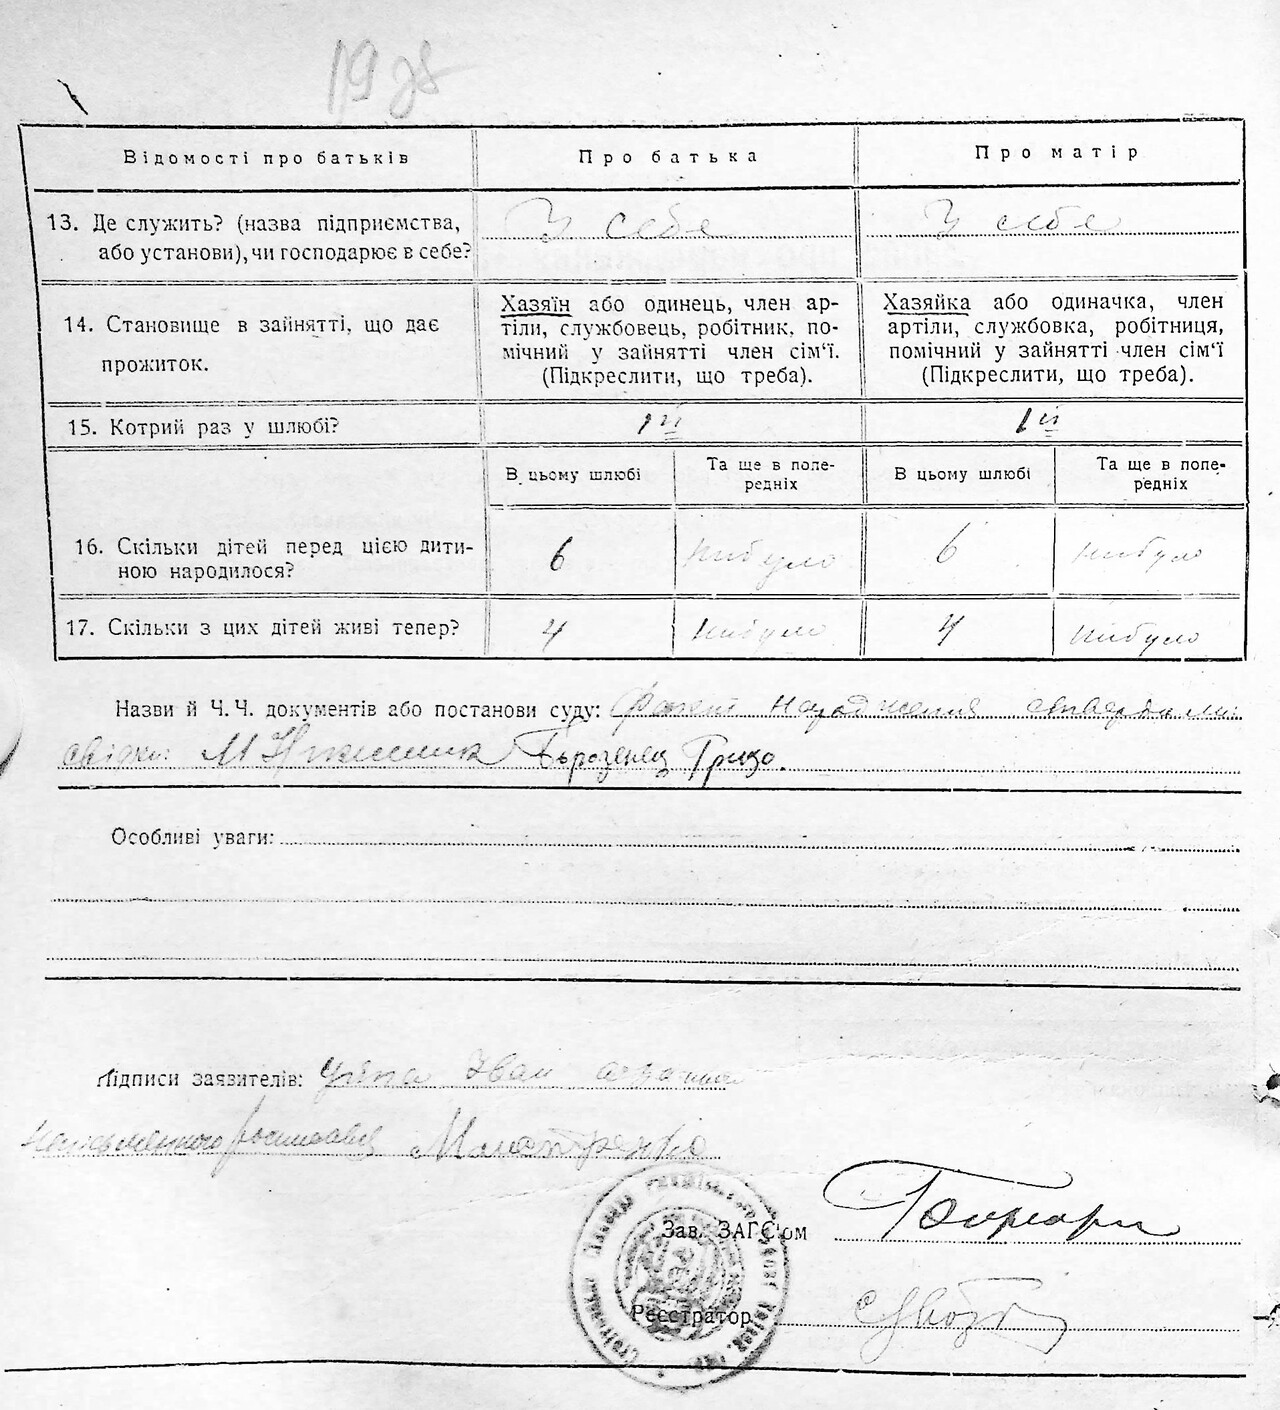 Відомості про батьків
Про батька
Про матір
13. Де служить? (назва підприємства,
або установи), чи господарює в себе?
У себе
У себе
14. Становище в зайнятті, що дає
прожиток.
Хазяїн або одинець, член ар-
тілі, службовець, робітник, по-
мічний у зайнятті член сім'ї.
(Підкреслити, що треба).
Хазяйка або одиначка, член
артілі, службовка, робітниця,
помічний у зайнятті член сім'ї
(Підкреслити, що треба).
15. Котрий раз у шлюбі?
1й
1й
В цьому шлюбі
Та ще в попе-
редніх
В цьому шлюбі
Та ще в попе-
редніх
16. Скільки дітей перед цією дити-
ною народилося?
6
нибуло
6
нибуло
17. Скільки з цих дітей живі тепер?
4
нибуло
4
нибуло
Назви й Ч.Ч. документів або постанови суду: народження
свідки: Грицо.
Особливі уваги:
Підписи заявителів: Іван
Зав. ЗАГС'ом
Реєстратор